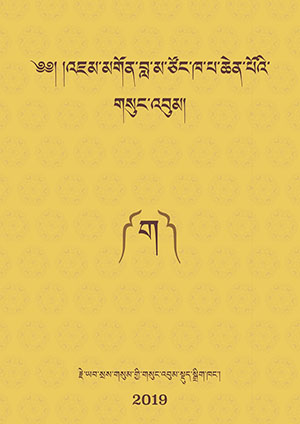 ༄༅། །འཇམ་མགོན་བླ་མ་ཙོང་ཁ་པ་ཆེན་པོའི་
གསུང་འབུམ།
༼ག༽
རྗེ་ཡབ་སྲས་གསུམ་གྱི་གསུང་འབུམ་སྡུད་སྒྲིག་ཁང་།
2019